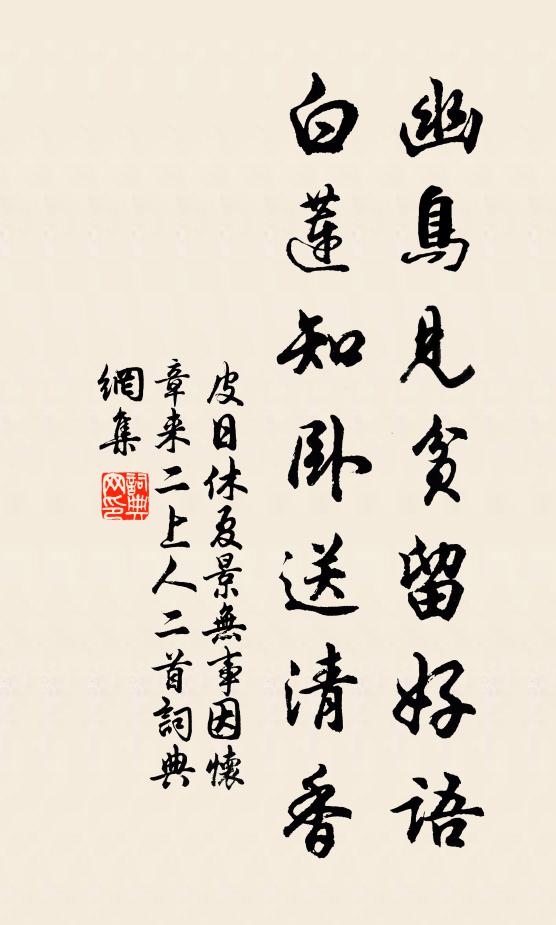 幽鳥見貧留好語
白蓮知臥送清香
皮日休夏景無事因懷
章来二上人二首詞典
網集
詞典
网印